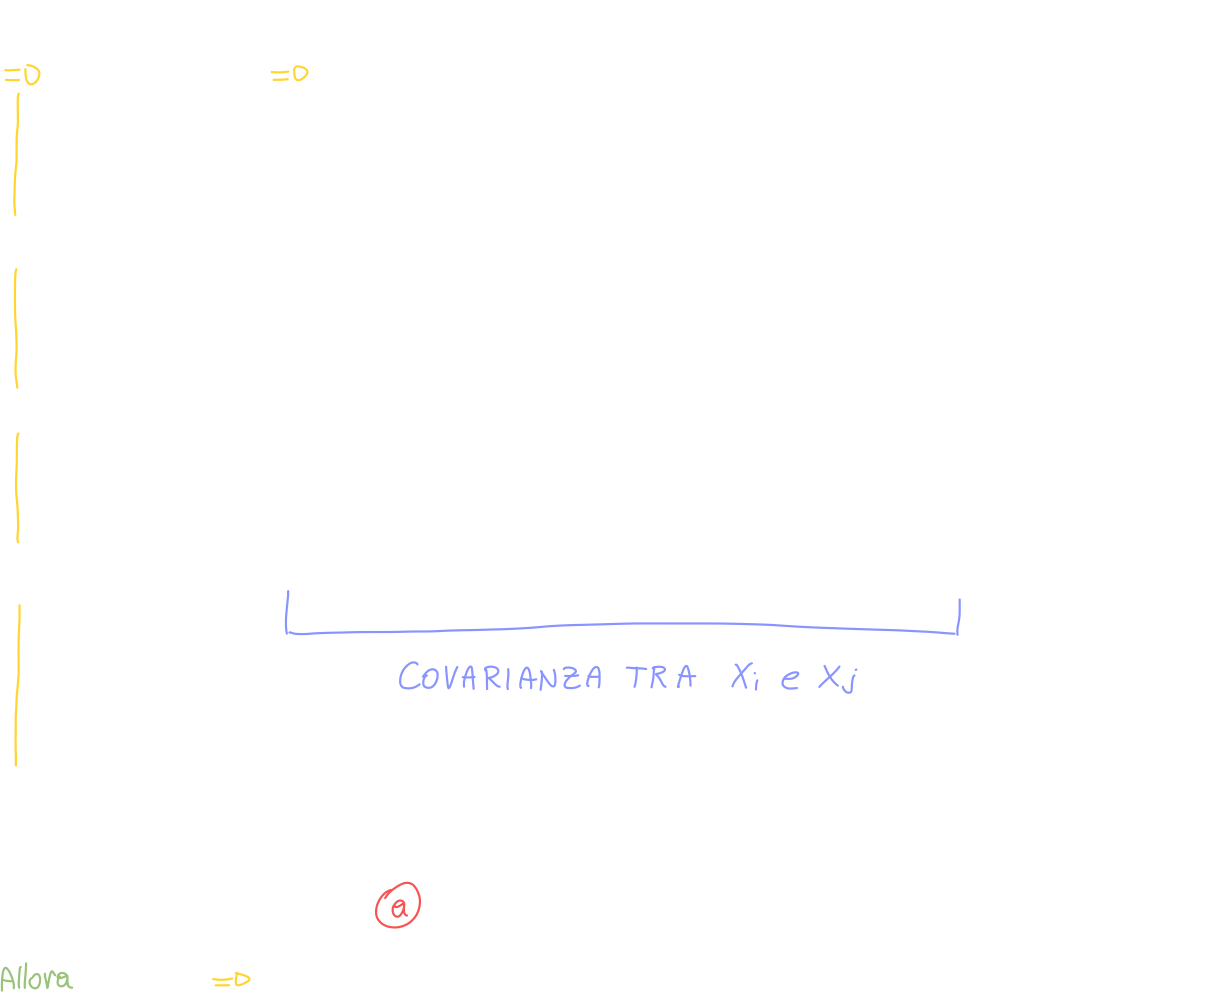 =D =D
COVARIANZA TRA Xi e Xj
a
Allora =D